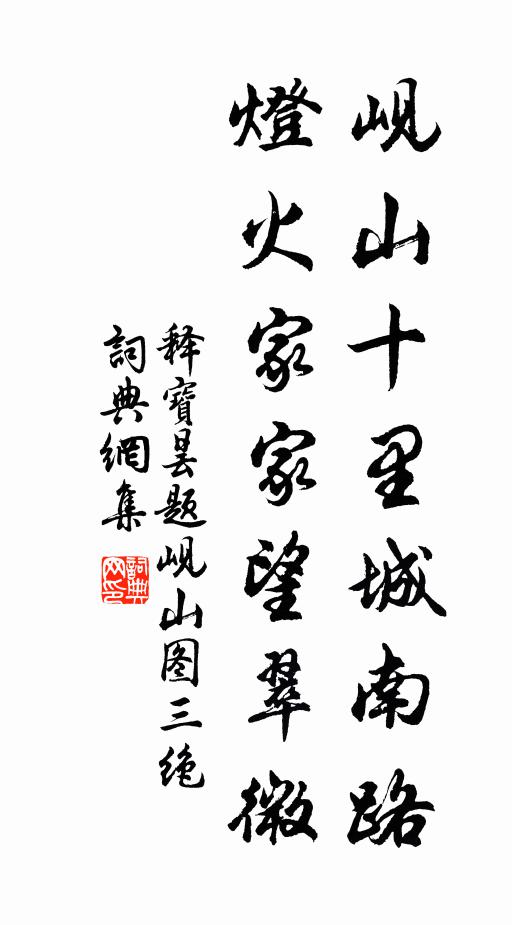 岘山十里城南路
燈火家家望翠微
释寶昙题岘山图三绝
詞典網集
詞典
网印